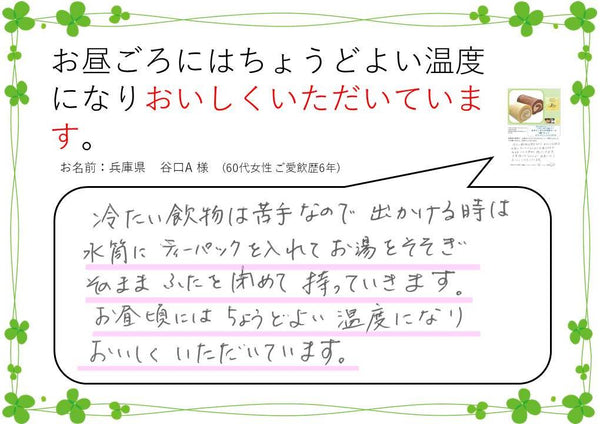 お昼ごろにはちょうどよい温度
になりおいしくいただいていま
す。
お名前：兵庫県　谷口A 様　（60代女性 ご愛飲歴6年）
冷たい飲物は苦手なので 出かける時は
水筒に ティーパックを入れて お湯をそそぎ
そのまま ふたを閉めて 持っていきます。
お昼頃には ちょうどよい 温度になり
おいしく いただいています。